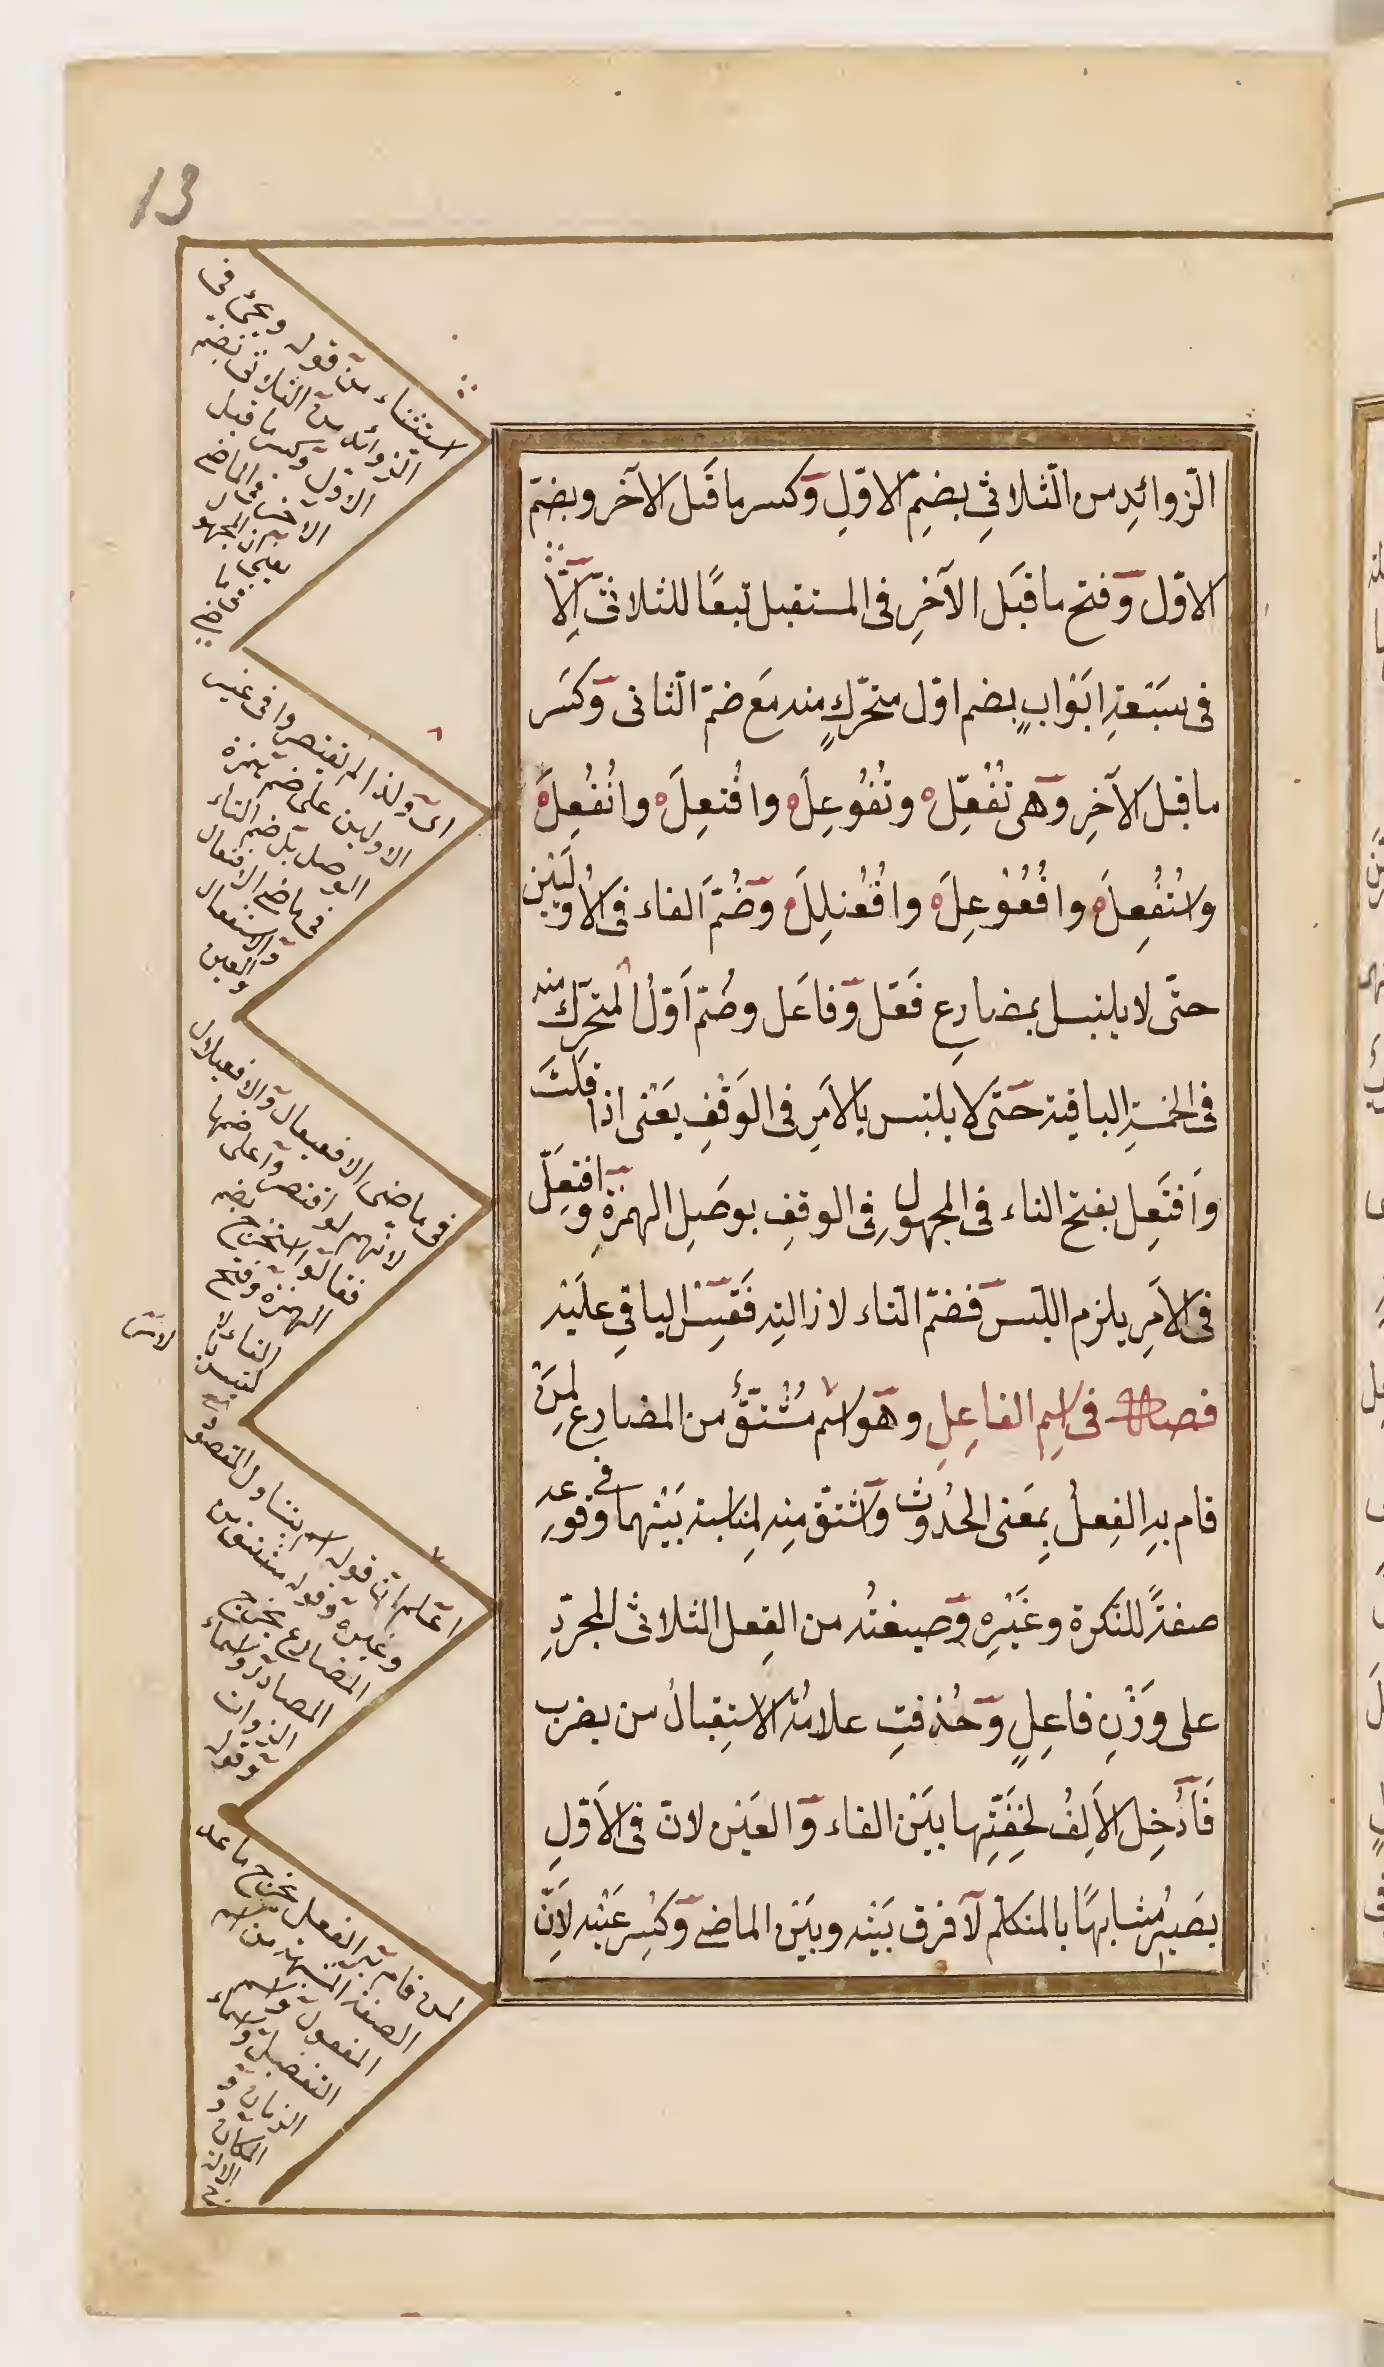 13
الزّوائدِ من الثلاثيّ بضمّ الاوّلِ وَكسر ما قَبل الآخر وبضمّ
الاوّل وَفتح ما قبَل الآخرِ فى المستقبل تبعًا للثلاثىّ اِلّا
فى سَبْعةِ ابَوْابٍ بضم اوّل متحّركٍ منه مَع ضمّ الثانى وَكسَر
ما قبل الآخِرِ وَهى تُفُعِّلَ وتُفُوعِلَ وافُتعِلَ وانُفُعِلَ
واستُفُعِلَ وافُعُوْعِلَ وافُعُنلِلَ وَضُمَّ الفاء فى الاُولَيَيْن
حتّى لا يلتبس بمضارِع فَعّل وَفاعَل وضُمّ اَوّلُ المتحرّك منه
فى الخمسةِ الباقية حَتّى لا يلتبس بالاَمرِ فى الوَقْفِ يَعْنى اذا قلتَ
وَافتَعِل بفتح التاء فى المجهولِ فى الوقفِ بوصَلِ الهمزةِ وَافتعِلْ
فى الاَمرِ يلزم اللبَس فَضمّ التاء لازالتِه فَقِسْ الباقى عليَهْ
فصل فى اسِم الفاعِلِ وهَو اسْم مُشْتقٌّ من المضارِع لمِنَ
قام بهِ الفِعلُ بِمعَنى الحُدُوث وَاشتقّ مِنه لِمناسَبة بيَنْهما فى وقوعِه
صفةً للنكرة وغَيْرِه وَصيغتُه من الفِعل الثلاثى المجرّدِ
على وَزْنِ فاعِلٍ وَحُذفتِ علامُة الاستِقبالُ من يضرب
فَاُدْخِلَ الاَلِفُ لخِفّتِها بيَنْ الفاء وَالعَيْن لانّ فى الاَوّلِ
يصَيرُ مُشابهًا بالمتكلم لَا فرق بيَنْه وبيَنْ الماضى وَكُسِر عَيْنه لَاِنّ
استثناء من قوله ويجئ فى
الزوائد من الثلاثى بضم
الاوّل وكسر ما قبل
الآخر فى الماضى
اى ولذا لم يقتصروا فى غير
الاوليين على ضم همزة
الوصل بل ضم التاء
فى ماضى الافتعال
والاستفعال
والعين
فى ماضى الافعيعال والافعنلال
لانهم لو اقتصروا على ضمها
فقالوا استخرج بضم
الهمزة وفتح
التاء
لالتبس
اعلم ان قوله اسم يتناول المقصود
وغيره وقوله مشتق من
المضارع يخرج
المصادر واسماء
الذوات
وقوله
لمن قام به الفعل يخرج ما عدا
الصفة المشبهة من اسم
المفعول واسم
التفضيل واسماء
الزمان و
المكان و
الالة